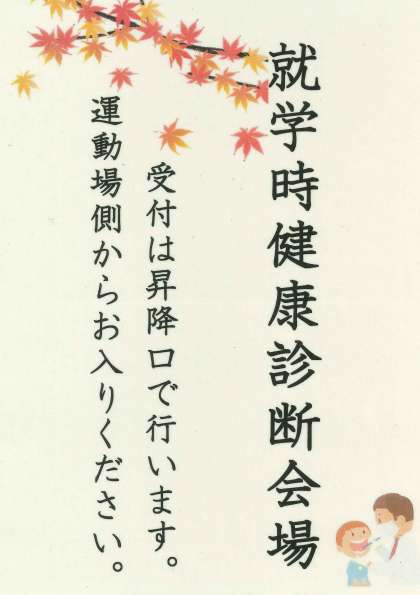 就学時健康診断会場
受付は昇降口で行います。
運動場側からお入りください。